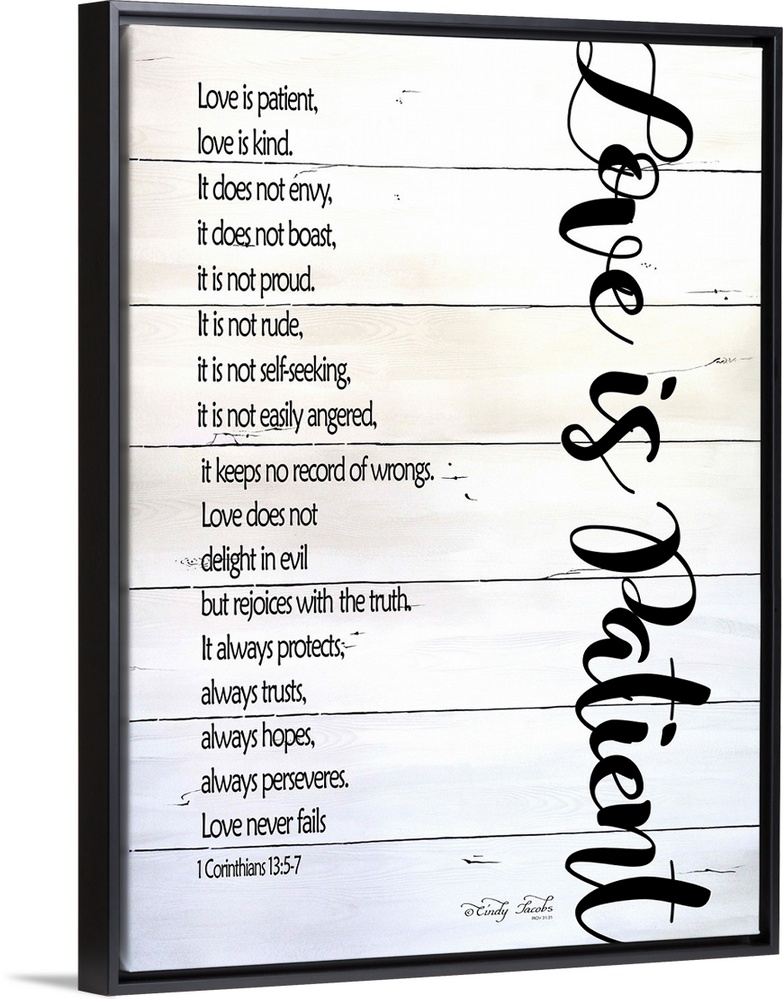 Love is patient,
love is kind.
It does not envy,
it does not boast,
it is not proud.
It is not rude,
it is not self-seeking,
it is not easily angered,
it keeps no record of wrongs.
Love does not
delight in evil
but rejoices with the truth.
It always protects,
always trusts,
always hopes,
always perseveres.
Love never fails
1 Corinthians 13:5-7
Love is Patient
©Cindy Jacobs